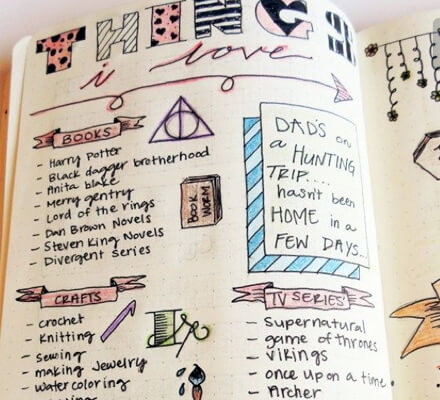 THINGS
i love
BOOKS
- Harry Potter
- Black dagger brotherhood
- Anita blake
- Merry gentry
- Lord of the rings
- Dan Brown Novels
- Steven King Novels
- Divergent Series
BOOK
WORM
DAD'S on
a HUNTING
TRIP....
hasn't been
HOME in a
FEW DAYS...
CRAFTS
- crochet
- Knitting
- sewing
- making Jewelry
- watercoloring
TV SERIES
- Supernatural
- game of thrones
- vikings
- once upon a time
- Archer